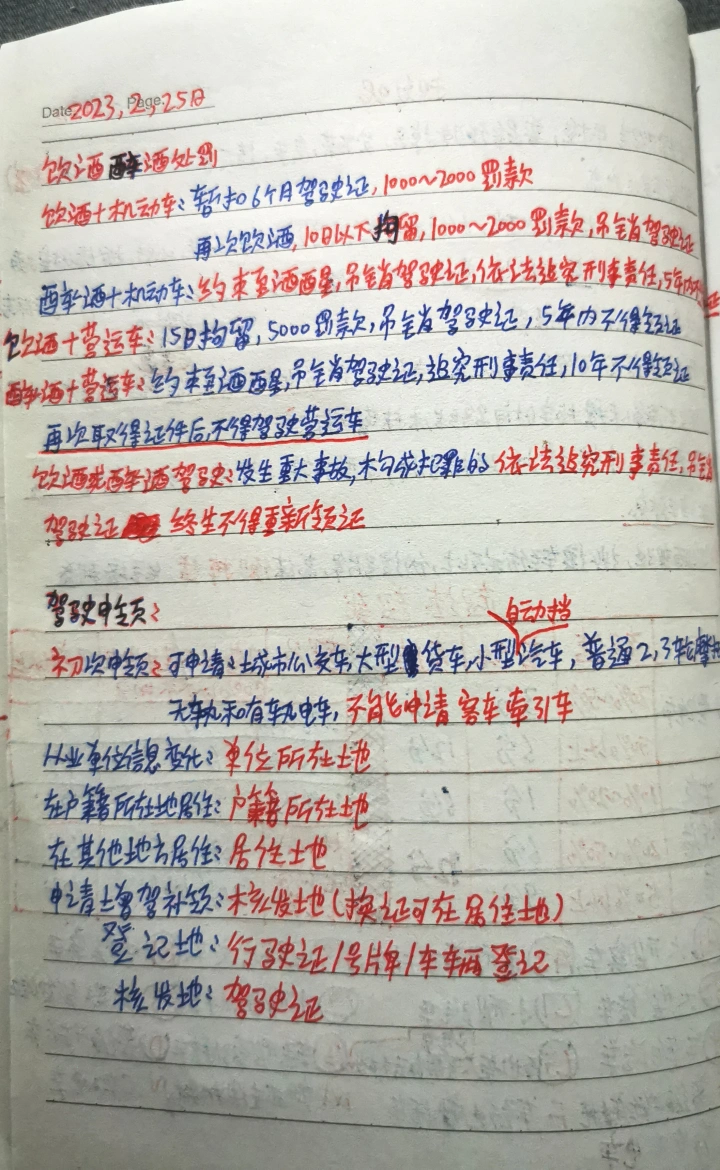 Date 2023,2,25日 Page:
饮酒醉酒处罚
饮酒+机动车:暂扣6个月驾驶证,1000~2000罚款
再次饮酒,10日以下拘留,1000~2000罚款,吊销驾驶证
醉酒+机动车:约束至酒醒,吊销驾驶证,依法追究刑事责任,5年内
饮酒+营运车:15日拘留,5000罚款,吊销驾驶证,5年内不得领证
醉酒+营运车:约束至酒醒,吊销驾驶证,追究刑事责任,10年不得领证
再次取得证件后,不得驾驶营运车
饮酒或醉酒驾驶:发生重大事故,构成犯罪的依法追究刑事责任,吊销
驾驶证 终生不得重新领证
驾驶申领:
自动挡
初次申领:可申请:城市公交车,大型货车,小型汽车,普通2,3轮摩托
无轨和有轨电车,不能申请客车牵引车
从业单位信息变化:单位所在地
在户籍所在地居住:户籍所在地
在其他地方居住:居住地
申请增驾补领:核发地(换证可在居住地)
登记地:行驶证/号牌/车辆登记
核发地:驾驶证